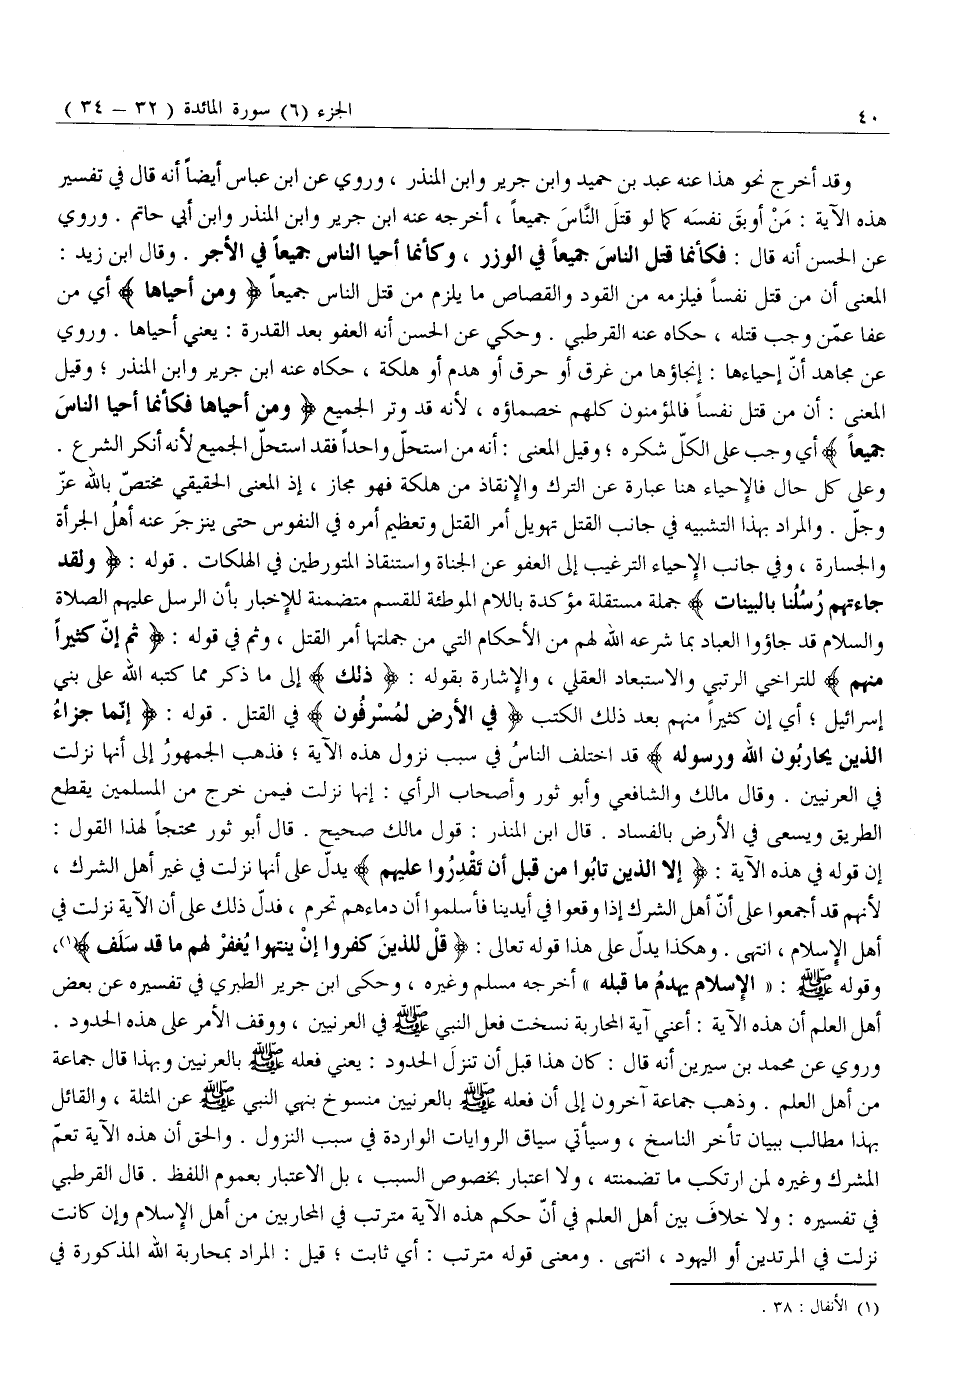 ٤٠ الجزء (٦) سورة المائدة ( ٣٢ – ٣٤ )
وقد أخرج نحو هذا عنه عبد بن حميد وابن جرير وابن المنذر ، وروي عن ابن عباس أيضاً أنه قال في تفسير
هذه الآية : مَنْ أوبقَ نفسَه كما لو قتلَ النَّاسَ جميعاً ، أخرجه عنه ابن جرير وابن المنذر وابن أبي حاتم . وروي
عن الحسن أنه قال : فكأنما قتل الناسَ جميعاً في الوزر ، وكأنما أحيا الناس جميعاً في الأجر . وقال ابن زيد :
المعنى أن من قتل نفساً فيلزمه من القود والقصاص ما يلزم من قتل الناس جميعاً ﴿ ومن أحياها ﴾ أي من
عفا عمّن وجب قتله ، حكاه عنه القرطبي . وحكي عن الحسن أنه العفو بعد القدرة : يعني أحياها . وروي
عن مجاهد أنّ إحياءها : إنجاؤها من غرق أو حرق أو هدم أو هلكة ، حكاه عنه ابن جرير وابن المنذر ؛ وقيل
المعنى : أن من قتل نفساً فالمؤمنون كلهم خصماؤه ، لأنه قد وتر الجميع ﴿ ومن أحياها فكأنما أحيا الناسَ
جميعاً ﴾ أي وجب على الكلّ شكره ؛ وقيل المعنى : أنه من استحلّ واحداً فقد استحلّ الجميع لأنه أنكر الشرع .
وعلى كل حال فالإحياء هنا عبارة عن الترك والإنقاذ من هلكة فهو مجاز ، إذ المعنى الحقيقي مختصّ بالله عزّ
وجلّ . والمراد بهذا التشبيه في جانب القتل تهويل أمر القتل وتعظيم أمره في النفوس حتى ينزجرَ عنه أهلُ الجرأة
والجسارة ، وفي جانب الإحياء الترغيب إلى العفو عن الجناة واستنقاذ المتورطين في الهلكات . قوله : ﴿ ولقد
جاءتهم رُسُلُنا بالبينات ﴾ جملة مستقلة مؤكدة باللام الموطئة للقسم متضمنة للإخبار بأن الرسل عليهم الصلاة
والسلام قد جاؤوا العباد بما شرعه الله لهم من الأحكام التي من جملتها أمر القتل ، وثم في قوله : ﴿ ثم إنّ كثيراً
منهم ﴾ للتراخي الرتبي والاستبعاد العقلي ، والإشارة بقوله : ﴿ ذلك ﴾ إلى ما ذكر مما كتبه الله على بني
إسرائيل ؛ أي إن كثيراً منهم بعد ذلك الكتب ﴿ في الأرض لمُسْرفُون ﴾ في القتل . قوله : ﴿ إنّما جزاءُ
الذين يحاربُون الله ورسوله ﴾ قد اختلف الناسُ في سبب نزول هذه الآية ؛ فذهب الجمهورُ إلى أنها نزلت
في العرنيين . وقال مالك والشافعي وأبو ثور وأصحاب الرأي : إنها نزلت فيمن خرج من المسلمين يقطع
الطريق ويسعى في الأرض بالفساد . قال ابن المنذر : قول مالك صحيح . قال أبو ثور محتجاً لهذا القول :
إن قوله في هذه الآية : ﴿ إلا الذين تابُوا من قبل أن تَقْدِرُوا عليهم ﴾ يدلّ على أنها نزلت في غير أهل الشرك ،
لأنهم قد أجمعوا على أنّ أهل الشرك إذا وقعوا في أيدينا فأسلموا أن دماءهم تحرم ، فدلّ ذلك على أن الآية نزلت في
أهل الإسلام ، انتهى . وهكذا يدلّ على هذا قوله تعالى : ﴿ قلْ للذينَ كفروا إنْ ينتهوا يُغفرْ لهم ما قد سَلَف ﴾(١)،
وقوله ﷺ : « الإسلام يهدمُ ما قبله » أخرجه مسلم وغيره ، وحكى ابن جرير الطبري في تفسيره عن بعض
أهل العلم أن هذه الآية : أعني آية المحاربة نسخت فعل النبي ﷺ في العرنيين ، ووقف الأمر على هذه الحدود .
وروي عن محمد بن سيرين أنه قال : كان هذا قبل أن تنزلَ الحدود : يعني فعله ﷺ بالعرنيين وبهذا قال جماعة
من أهل العلم . وذهب جماعة آخرون إلى أن فعله ﷺ بالعرنيين منسوخ بنهي النبي ﷺ عن المثلة ، والقائل
بهذا مطالب ببيان تأخر الناسخ ، وسيأتي سياق الروايات الواردة في سبب النزول . والحق أن هذه الآية تعمّ
المشرك وغيره لمن ارتكب ما تضمنته ، ولا اعتبار بخصوص السبب ، بل الاعتبار بعموم اللفظ . قال القرطبي
في تفسيره : ولا خلافَ بين أهل العلم في أنّ حكم هذه الآية مترتب في المحاربين من أهل الإسلام وإن كانت
نزلت في المرتدين أو اليهود ، انتهى . ومعنى قوله مترتب : أي ثابت ؛ قيل : المراد بمحاربة الله المذكورة في
(١) الأنفال : ٣٨ .